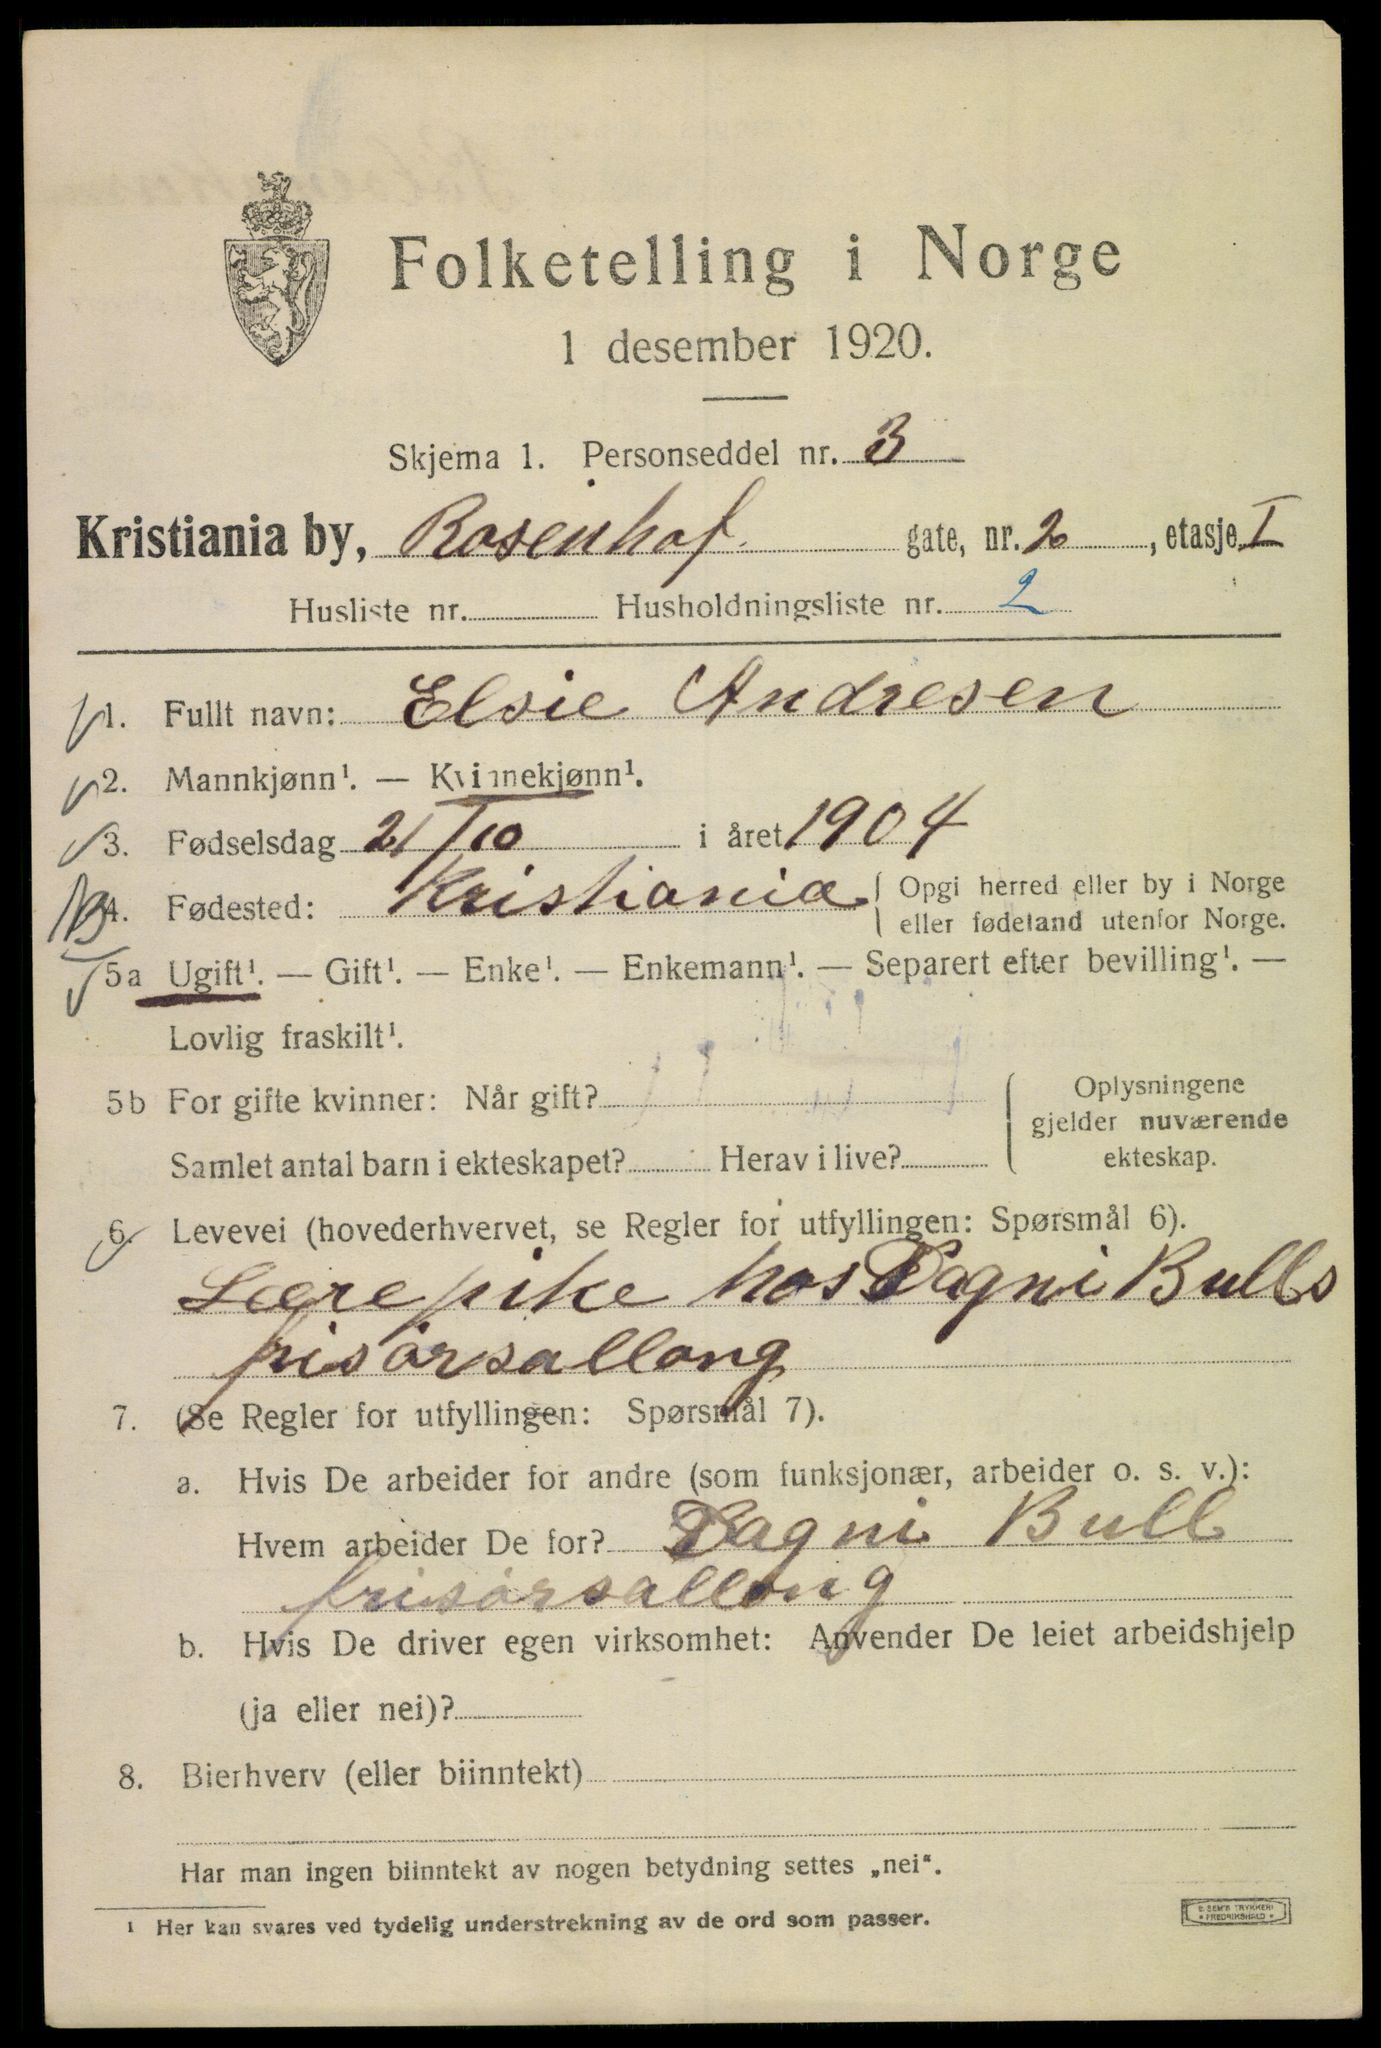 Folketelling i Norge
1 desember 1920.
Skjema 1. Personseddel nr. 3
Kristiania by, Rosenhof gate, nr. 2, etasje I
Husliste nr. Husholdningsliste nr. 2
1. Fullt navn: Elsie Andresen
2. Mannkjønn¹. — Kvinnekjønn¹.
3. Fødselsdag 21/10 i året 1904
4. Fødested: Kristiania { Opgi herred eller by i Norge
eller fødeland utenfor Norge.
5a Ugift¹. — Gift¹. — Enke¹. — Enkemann¹. — Separert efter bevilling¹. —
Lovlig fraskilt¹.
5b For gifte kvinner: Når gift? { Oplysningene
gjelder nuværende
Samlet antal barn i ekteskapet? Herav i live? ekteskap.
6. Levevei (hovederhvervet, se Regler for utfyllingen: Spørsmål 6).
Lærepike hos Dagni Bulls
frisørsallong
7. (Se Regler for utfyllingen: Spørsmål 7).
a. Hvis De arbeider for andre (som funksjonær, arbeider o. s. v.):
Hvem arbeider De for? Dagni Bull
frisørsallong
b. Hvis De driver egen virksomhet: Anvender De leiet arbeidshjelp
(ja eller nei)?
8. Bierhverv (eller biinntekt)
Har man ingen biinntekt av nogen betydning settes „nei“.
¹ Her kan svares ved tydelig understrekning av de ord som passer.
E. SEM'S TRYKKERI
* FREDRIKSHALD *